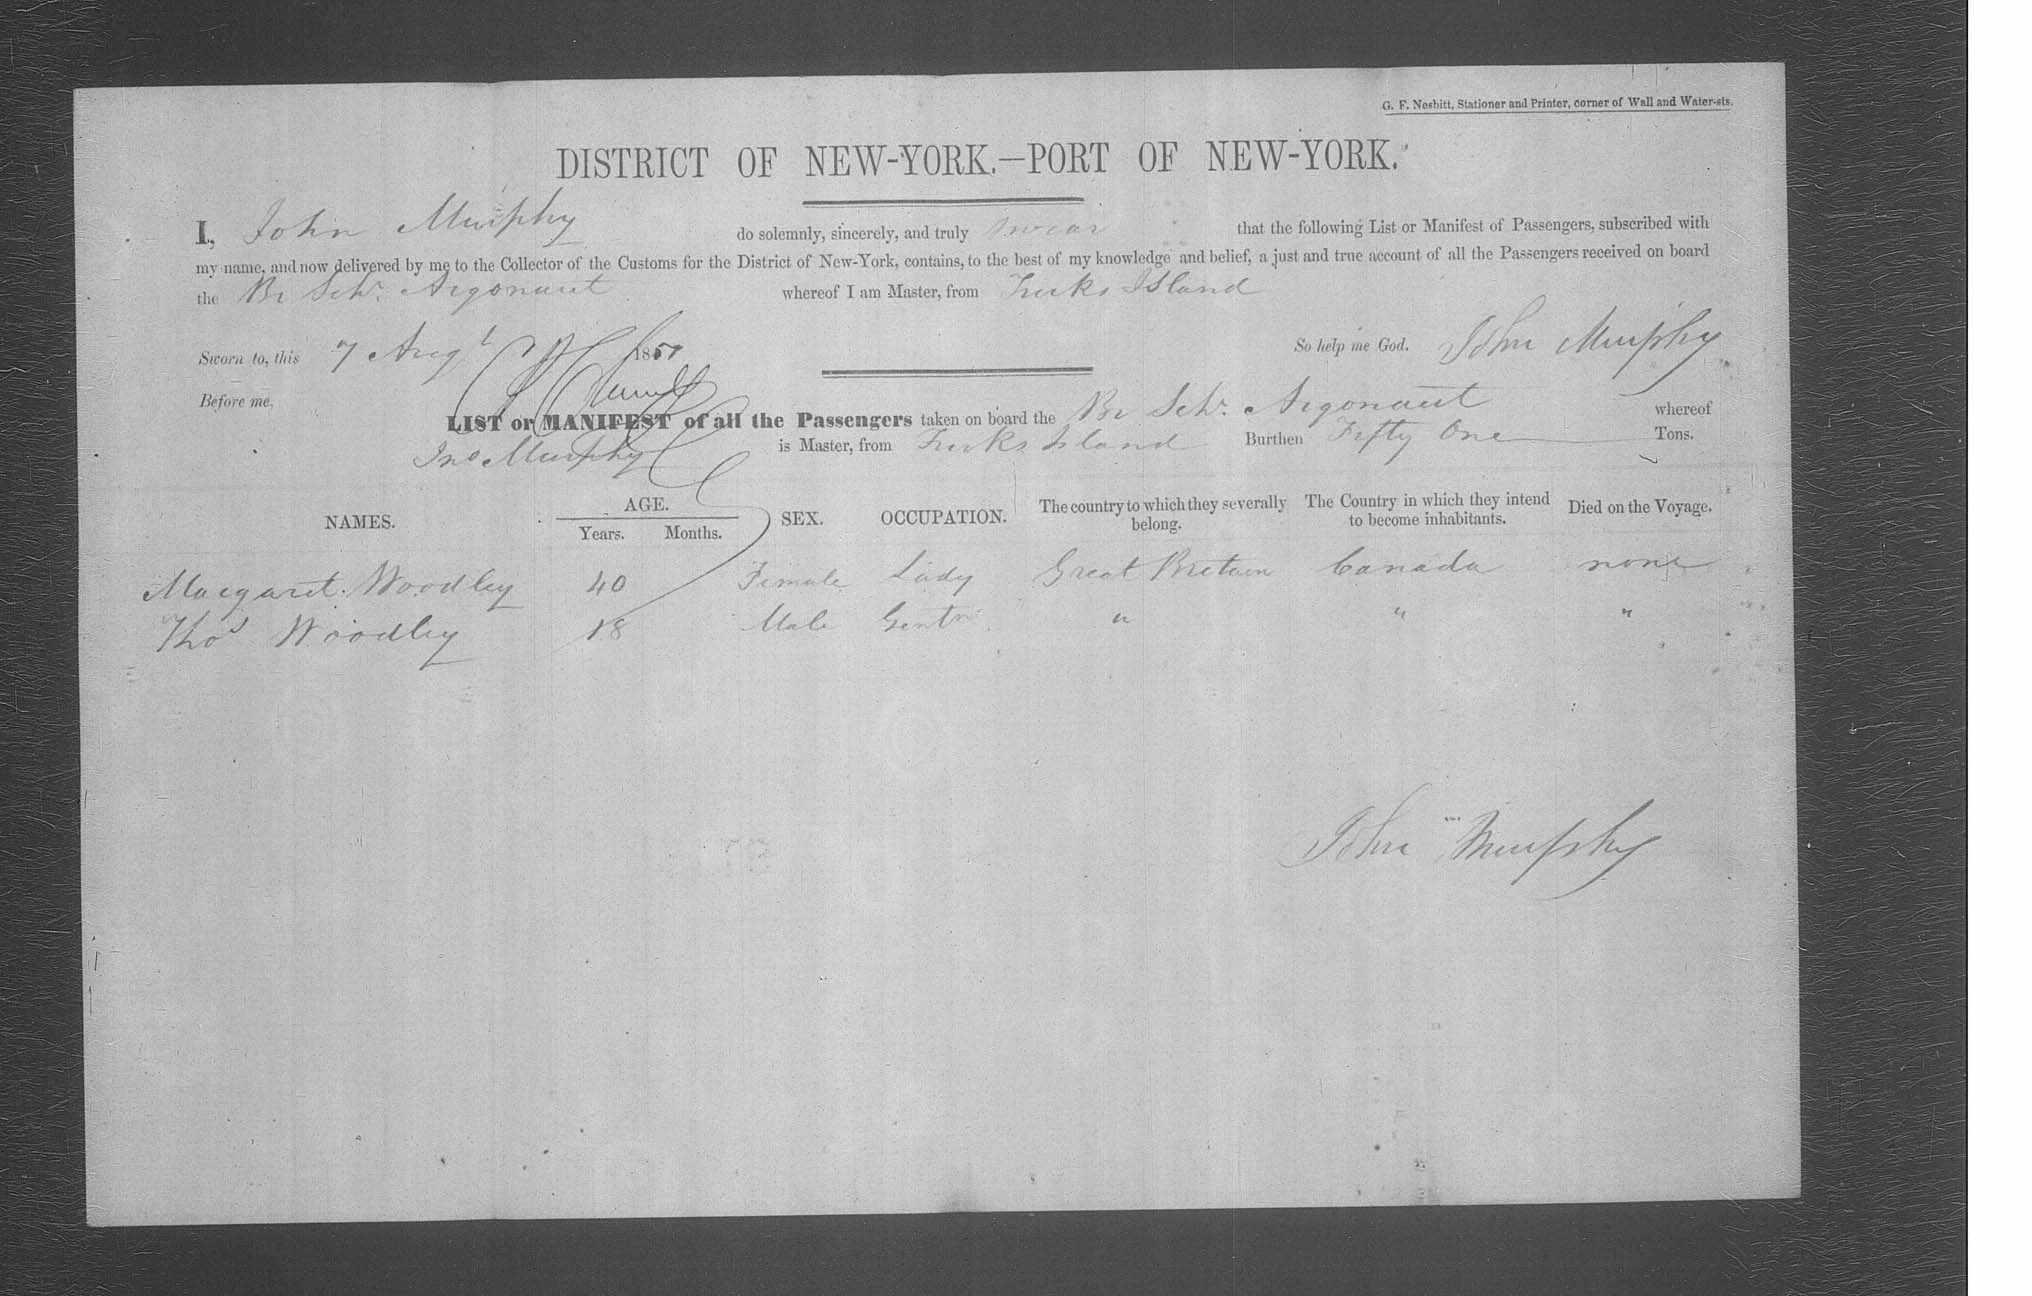 G. F. Nesbitt, Stationer and Printer, corner of Wall and Water-sts.
DISTRICT OF NEW-YORK.—PORT OF NEW-YORK.
I, John Murphy do solemnly, sincerely, and truly swear that the following List or Manifest of Passengers, subscribed with
my name, and now delivered by me to the Collector of the Customs for the District of New-York, contains, to the best of my knowledge and belief, a just and true account of all the Passengers received on board
the Br Schr. Argonaut whereof I am Master, from Turks Island
Sworn to, this 7 Augt 1851 So help me God. John Murphy
Before me,
LIST or MANIFEST of all the Passengers taken on board the Br Schr. Argonaut whereof
Jno Murphy is Master, from Turks Island Burthen Fifty One Tons.
NAMES. AGE. Years. Months. SEX. OCCUPATION. The country to which they severally belong. The Country in which they intend to become inhabitants. Died on the Voyage.
Margaret Woodley 40 Female Lady Great Britain Canada none
Thos Woodley 18 Male Gentn " " "
John Murphy